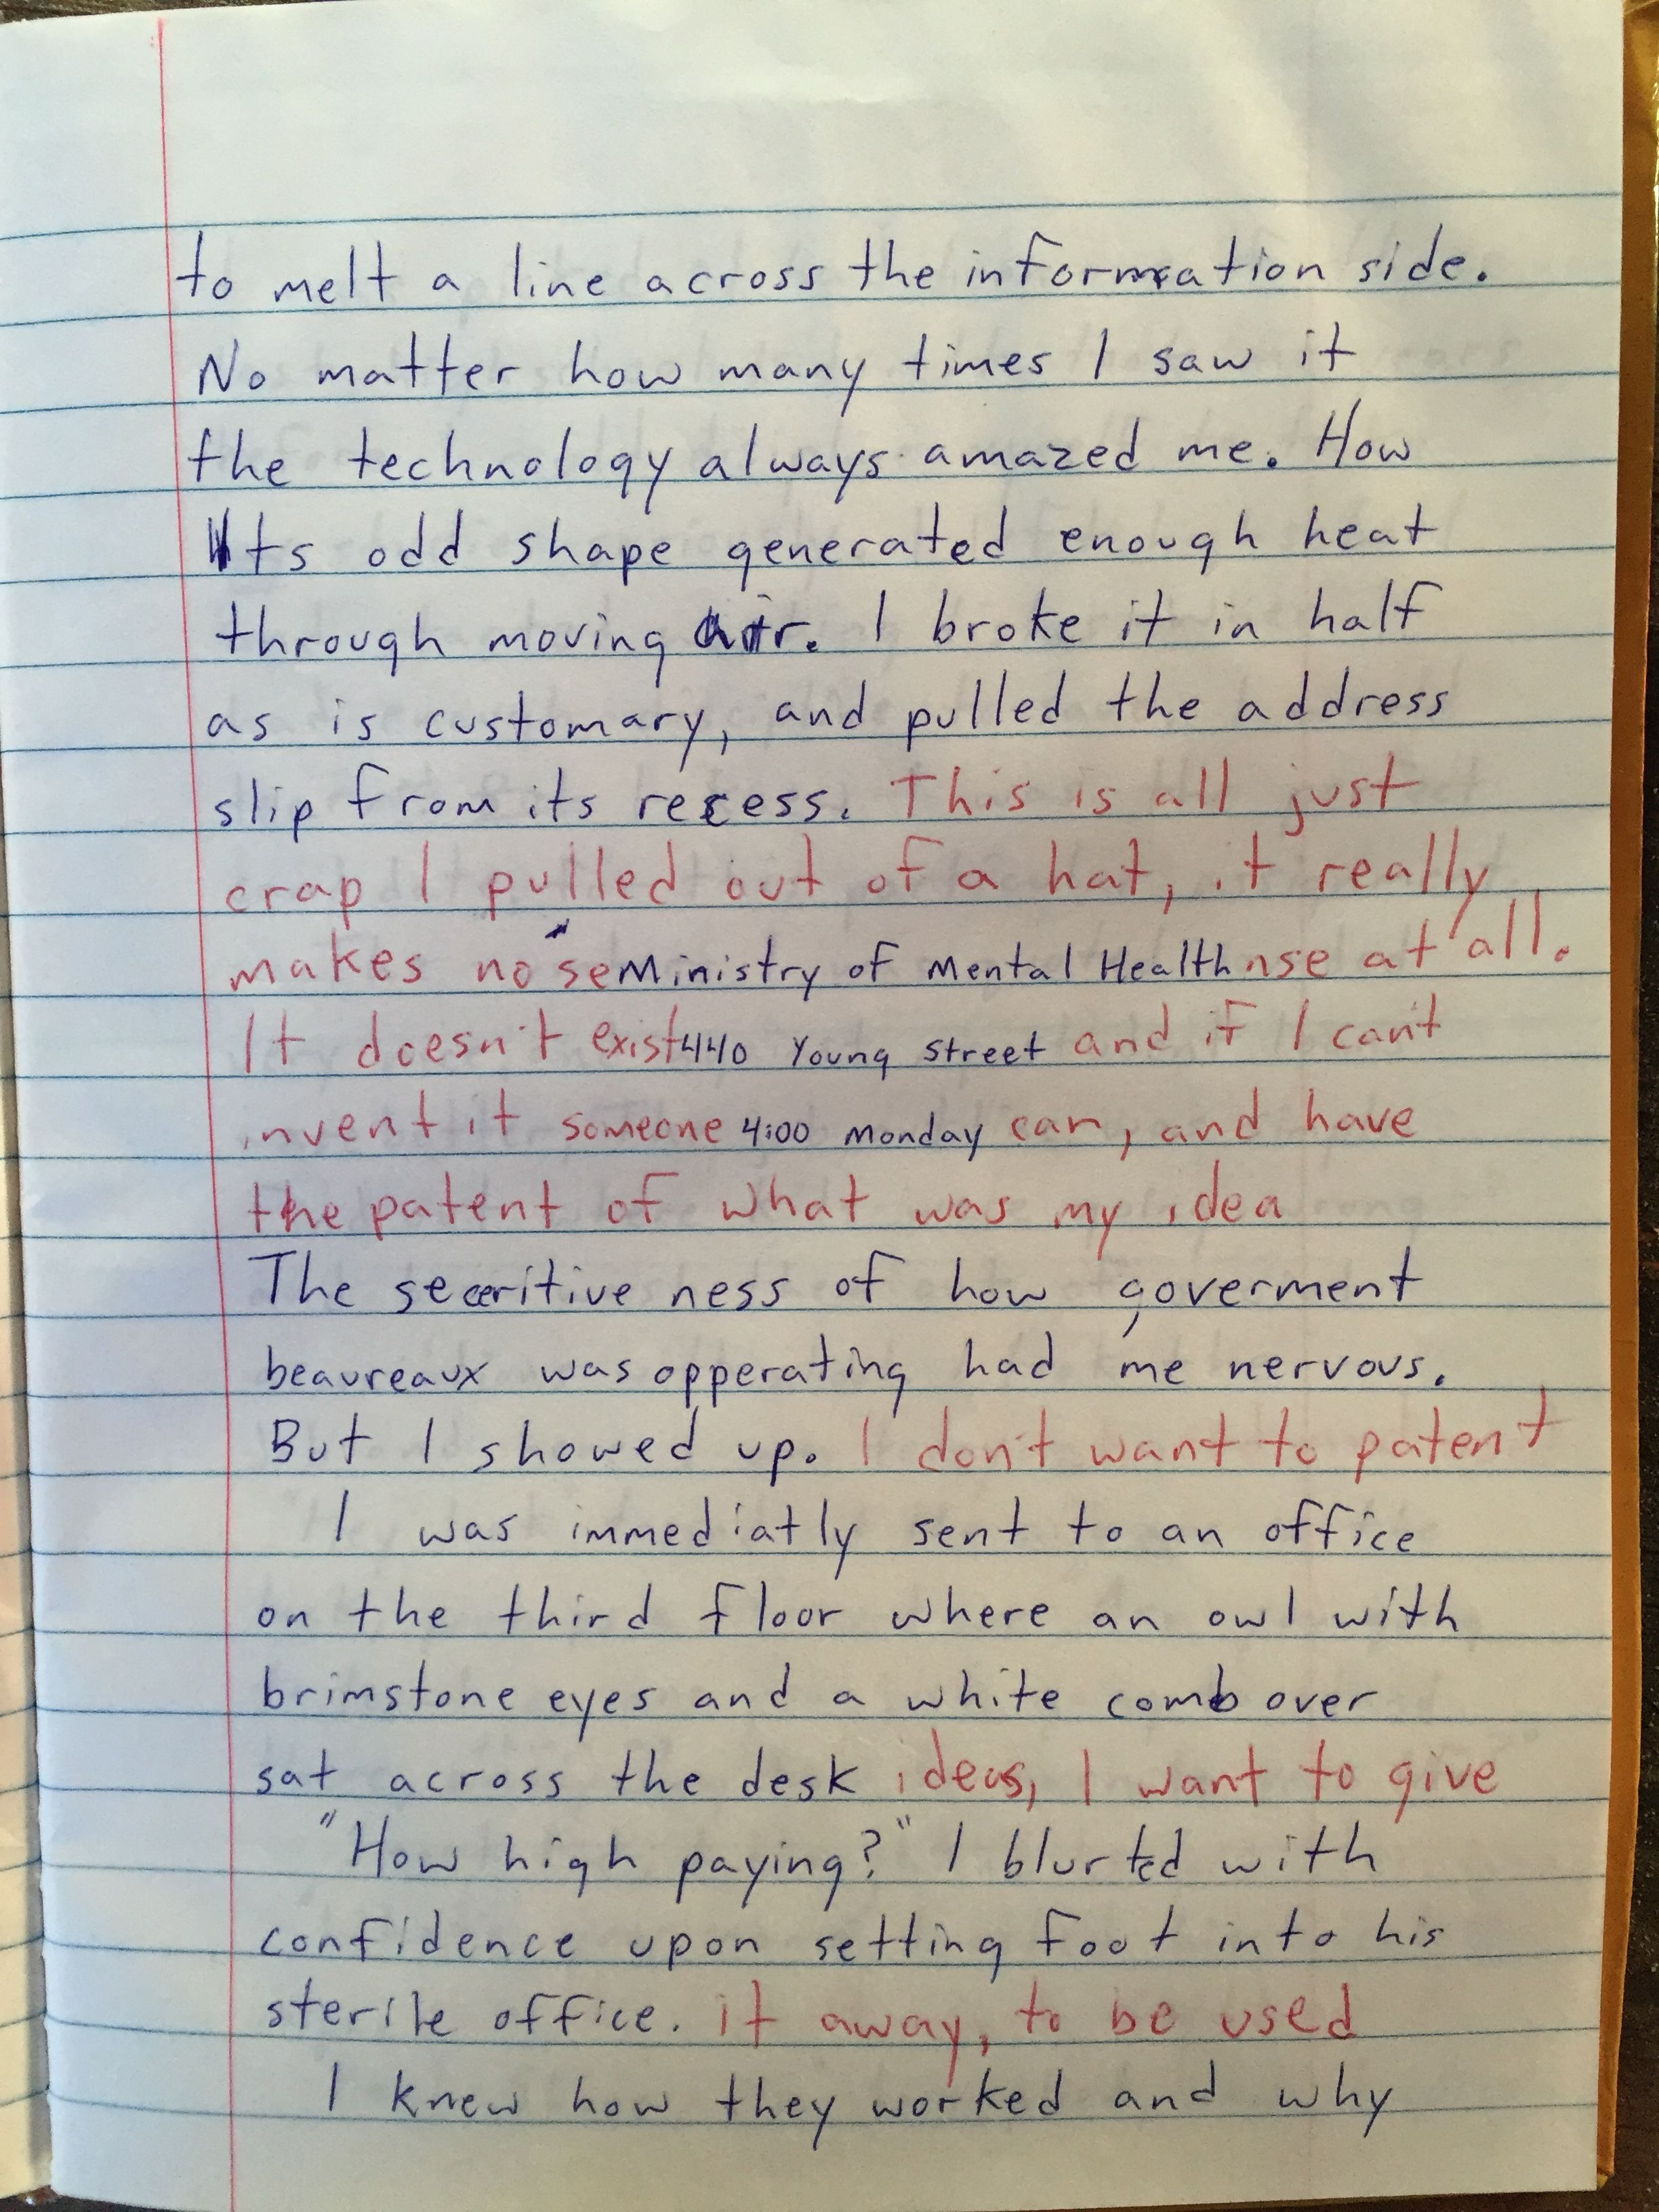 to melt a line across the information side.
No matter how many times I saw it
the technology always amazed me. How
Its odd shape generated enough heat
through moving air. I broke it in half
as is customary, and pulled the address
slip from its recess. This is all just
crap I pulled out of a hat, it really
makes no seMinistry of Mental Healthnse at all.
It doesn't exist440 Young Street and if I can't
invent it someone 4:00 Monday can, and have
the patent of what was my idea
The seceritive ness of how goverment
beaureaux was opperating had me nervous.
But I showed up. I don't want to patent
I was immediatly sent to an office
on the third floor where an owl with
brimstone eyes and a white comb over
sat across the desk ideas, I want to give
"How high paying?" I blurted with
confidence upon setting foot into his
sterile office. it away, to be used
I knew how they worked and why